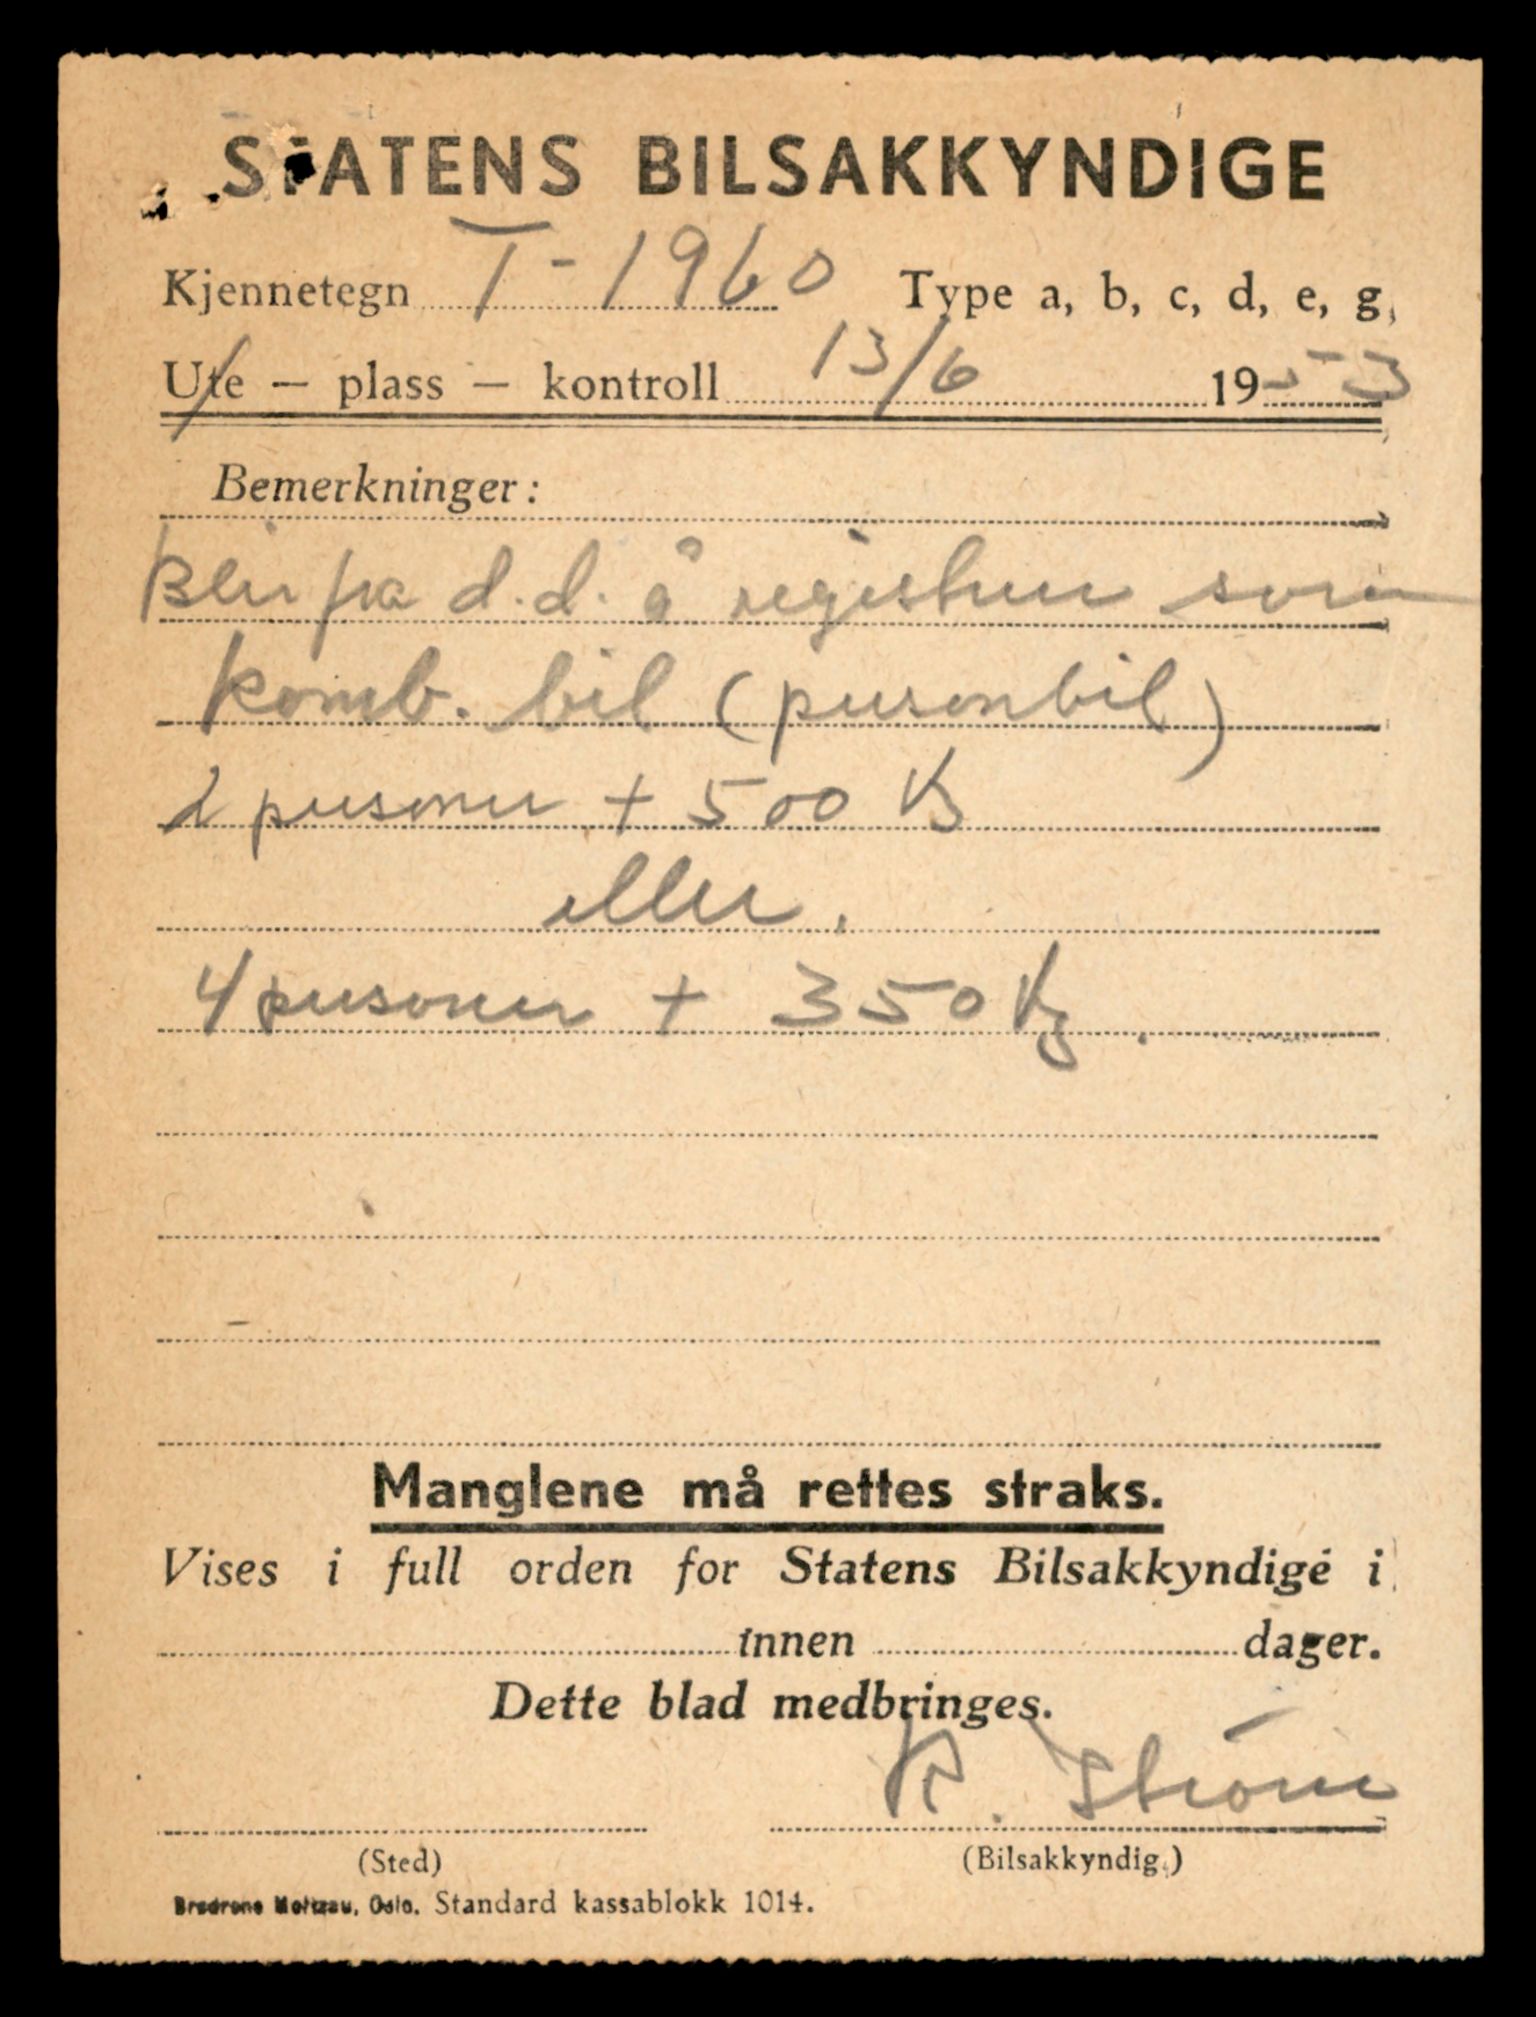 STATENS BILSAKKYNDIGE
Kjennetegn T-1960 Type a, b, c, d, e, g,
Ute — plass — kontroll 13/6 1953
Bemerkninger:
Blir fra d.d. å registrere som
komb. bil (personbil)
2 personer + 500 kg
eller.
4 personer + 350 kg.
Manglene må rettes straks.
Vises i full orden for Statens Bilsakkyndige i
innen dager.
Dette blad medbringes.
K. Strøm
(Sted) (Bilsakkyndig.)
Brødrene Moltzau, Oslo. Standard kassablokk 1014.